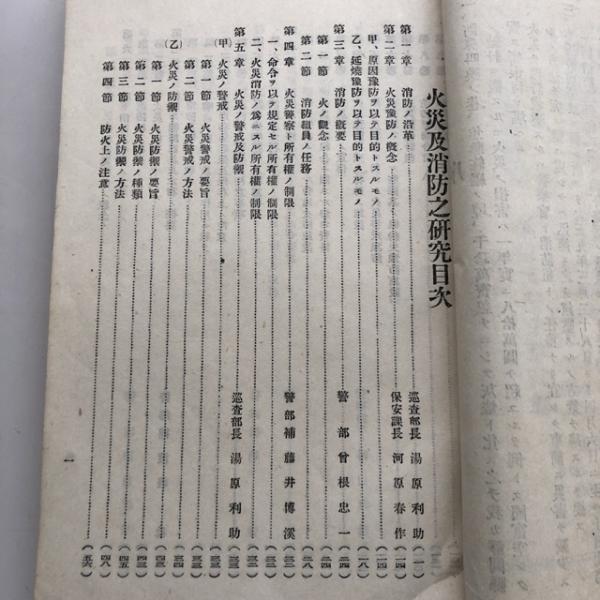 火災及消防之研究目次
第一章 消防ノ沿革 巡査部長 湯原利助 (一)
第二章 火災豫防ノ概念 保安課長 河原春作 (一四)
甲、原因豫防ヲ以テ目的トスルモノ (一四)
乙、延燒豫防ヲ以テ目的トスルモノ (一八)
第三章 消防ノ概要 警部 曾根忠一 (二四)
第一節 火ノ觀念 (二四)
第二節 消防組員ノ任務 (二八)
第四章 火災警察ト所有權ノ制限 警部補 藤井博溪 (三二)
一、命令ヲ以テ規定セル所有權ノ制限 (三二)
二、火災消防ノ爲ニスル所有權ノ制限 (三二)
第五章 火災ノ警戒及防禦 巡査部長 湯原利助 (三三)
(甲) 火災ノ警戒 (三三)
第一節 火災警戒ノ要旨 (三三)
第二節 火災警戒ノ方法 (三四)
(乙) 火災ノ防禦
第一節 火災防禦ノ要旨
第二節 火災防禦ノ種類 (四五)
第三節 火災防禦ノ方法 (四八)
第四節 防火上ノ注意 (五六)
一